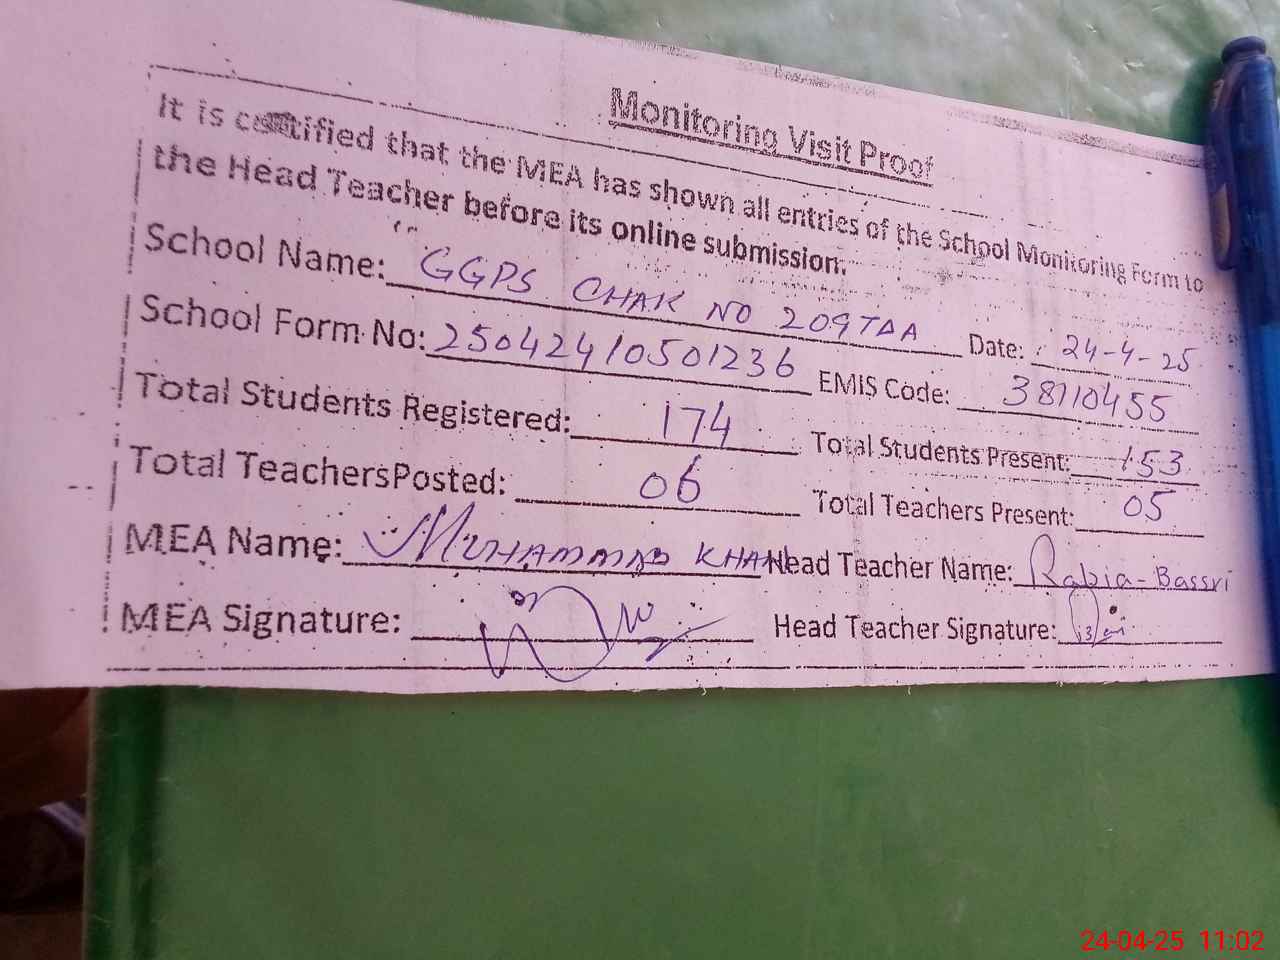 Monitoring Visit Proof
It is certified that the MEA has shown all entries of the School Monitoring Form to
the Head Teacher before its online submission.
School Name: GGPS CHAK NO 209TDA Date: 24-4-25
School Form No: 25042410501236 EMIS Code: 38110455
Total Students Registered: 174 Total Students Present: 153
Total TeachersPosted: 06 Total Teachers Present: 05
MEA Name: MUHAMMAD KHAN Head Teacher Name: Rabia-Bassri
MEA Signature: Head Teacher Signature:
24-04-25 11:02